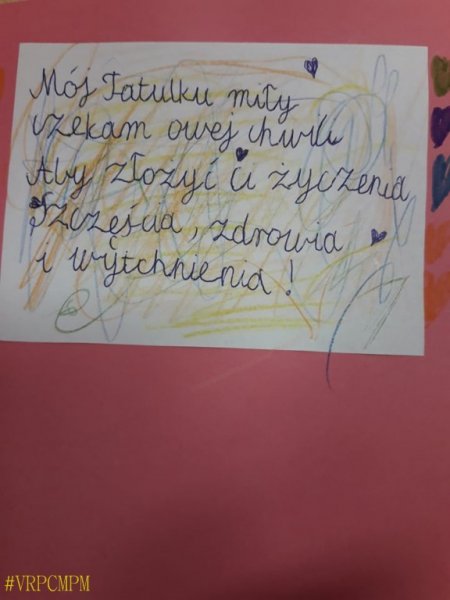 Mój Tatulku miły
czekam owej chwili
Aby złożyć Ci życzenia
Szczęścia, zdrowia
i wytchnienia!
#VRPCMPM